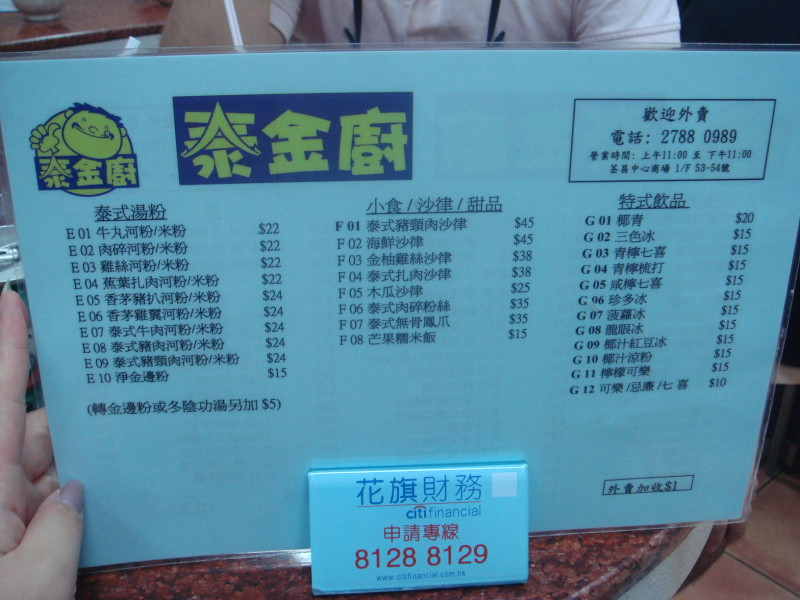 泰金廚
泰金廚
歡迎外賣
電話: 2788 0989
營業時間: 上午11:00 至 下午11:00
荃昌中心商場 1/F 53-54號
泰式湯粉
E 01 牛丸河粉/米粉 $22
E 02 肉碎河粉/米粉 $22
E 03 雞絲河粉/米粉 $22
E 04 蕉葉扎肉河粉/米粉 $22
E 05 香茅豬扒河粉/米粉 $24
E 06 香茅雞翼河粉/米粉 $24
E 07 泰式牛肉河粉/米粉 $24
E 08 泰式豬肉河粉/米粉 $24
E 09 泰式豬頸肉河粉/米粉 $24
E 10 淨金邊粉 $15
(轉金邊粉或冬陰功湯另加 $5)
小食 / 沙律 / 甜品
F 01 泰式豬頸肉沙律 $45
F 02 海鮮沙律 $45
F 03 金柚雞絲沙律 $38
F 04 泰式扎肉沙律 $38
F 05 木瓜沙律 $25
F 06 泰式肉碎粉絲 $35
F 07 泰式無骨鳳爪 $35
F 08 芒果糯米飯 $15
特式飲品
G 01 椰青 $20
G 02 三色冰 $15
G 03 青檸七喜 $15
G 04 青檸梳打 $15
G 05 咸檸七喜 $15
G 06 珍多冰 $15
G 07 菠蘿冰 $15
G 08 龍眼冰 $15
G 09 椰汁紅豆冰 $15
G 10 椰汁涼粉 $15
G 11 檸檬可樂 $15
G 12 可樂/忌廉/七喜 $10
外賣加收$1
花旗財務
citifinancial
申請專線
8128 8129
www.citifinancial.com.hk